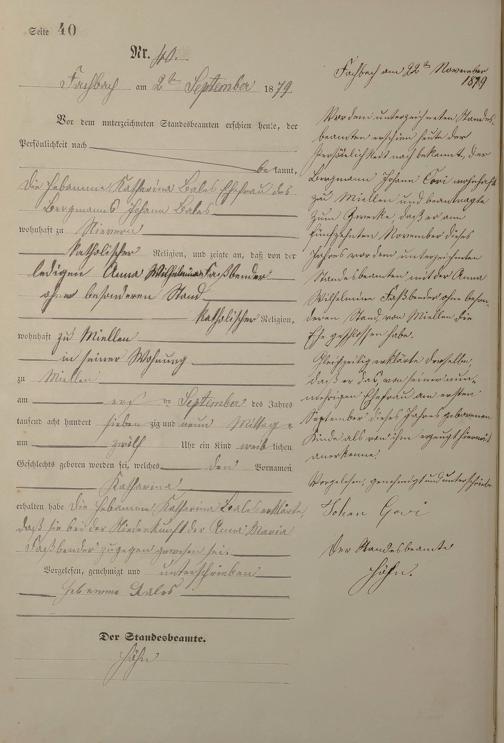 Seite 40
Nr. 40.
Fachbach am 2ten September 1879
Vor dem unterzeichneten Standesbeamten erschien heute, der
Persönlichkeit nach
bekannt,
die Hebamme Katharina Bales Ehefrau des
Bergmannes Johann Bales
wohnhaft zu Nievern
katholischer Religion, und zeigte an, daß von der
ledigen Anna Wilhelmine Faßbender
ohne besonderen Stand
katholischer Religion,
wohnhaft zu Miellen
in seiner Wohnung
zu Miellen
am ersten September des Jahres
tausend acht hundert siebenzig und neun Mittags
um zwölf Uhr ein Kind weiblichen
Geschlechts geboren worden sei, welches den Vornamen
Katharina
erhalten habe. Die Hebamme Katharina Bales erklärte
daß sie bei der Niederkunft der Anna Maria
Faßbender zugegen gewesen sei.
Vorgelesen, genehmigt und unterschrieben
Hebamme Bales
Der Standesbeamte.
Höhn
Fachbach am 22ten November
1879
Vor dem unterzeichneten Standes
beamten erschien heute der
Persönlichkeit nach bekannt, der
Bergmann Johann wohnhaft
zu Miellen und beantragte
zum Zwecke, daß er am
fünfzehnten November dieses
Jahres vor dem unterzeichneten
Standesbeamten mit der Anna
Wilhelmine Faßbender ohne beson
deren Stand von Miellen die
Ehe geschlossen habe.
Gleichzeitig erklärte derselbe,
daß er das, von seiner nun
mehrigen Ehefrau am ersten
September dieses Jahres geborenen
Kinde als von ihm erzeugt hiermit
anerkenne.
Vorgelesen, genehmigt und unterschrieben
Johan
Der Standesbeamte
Höhn.